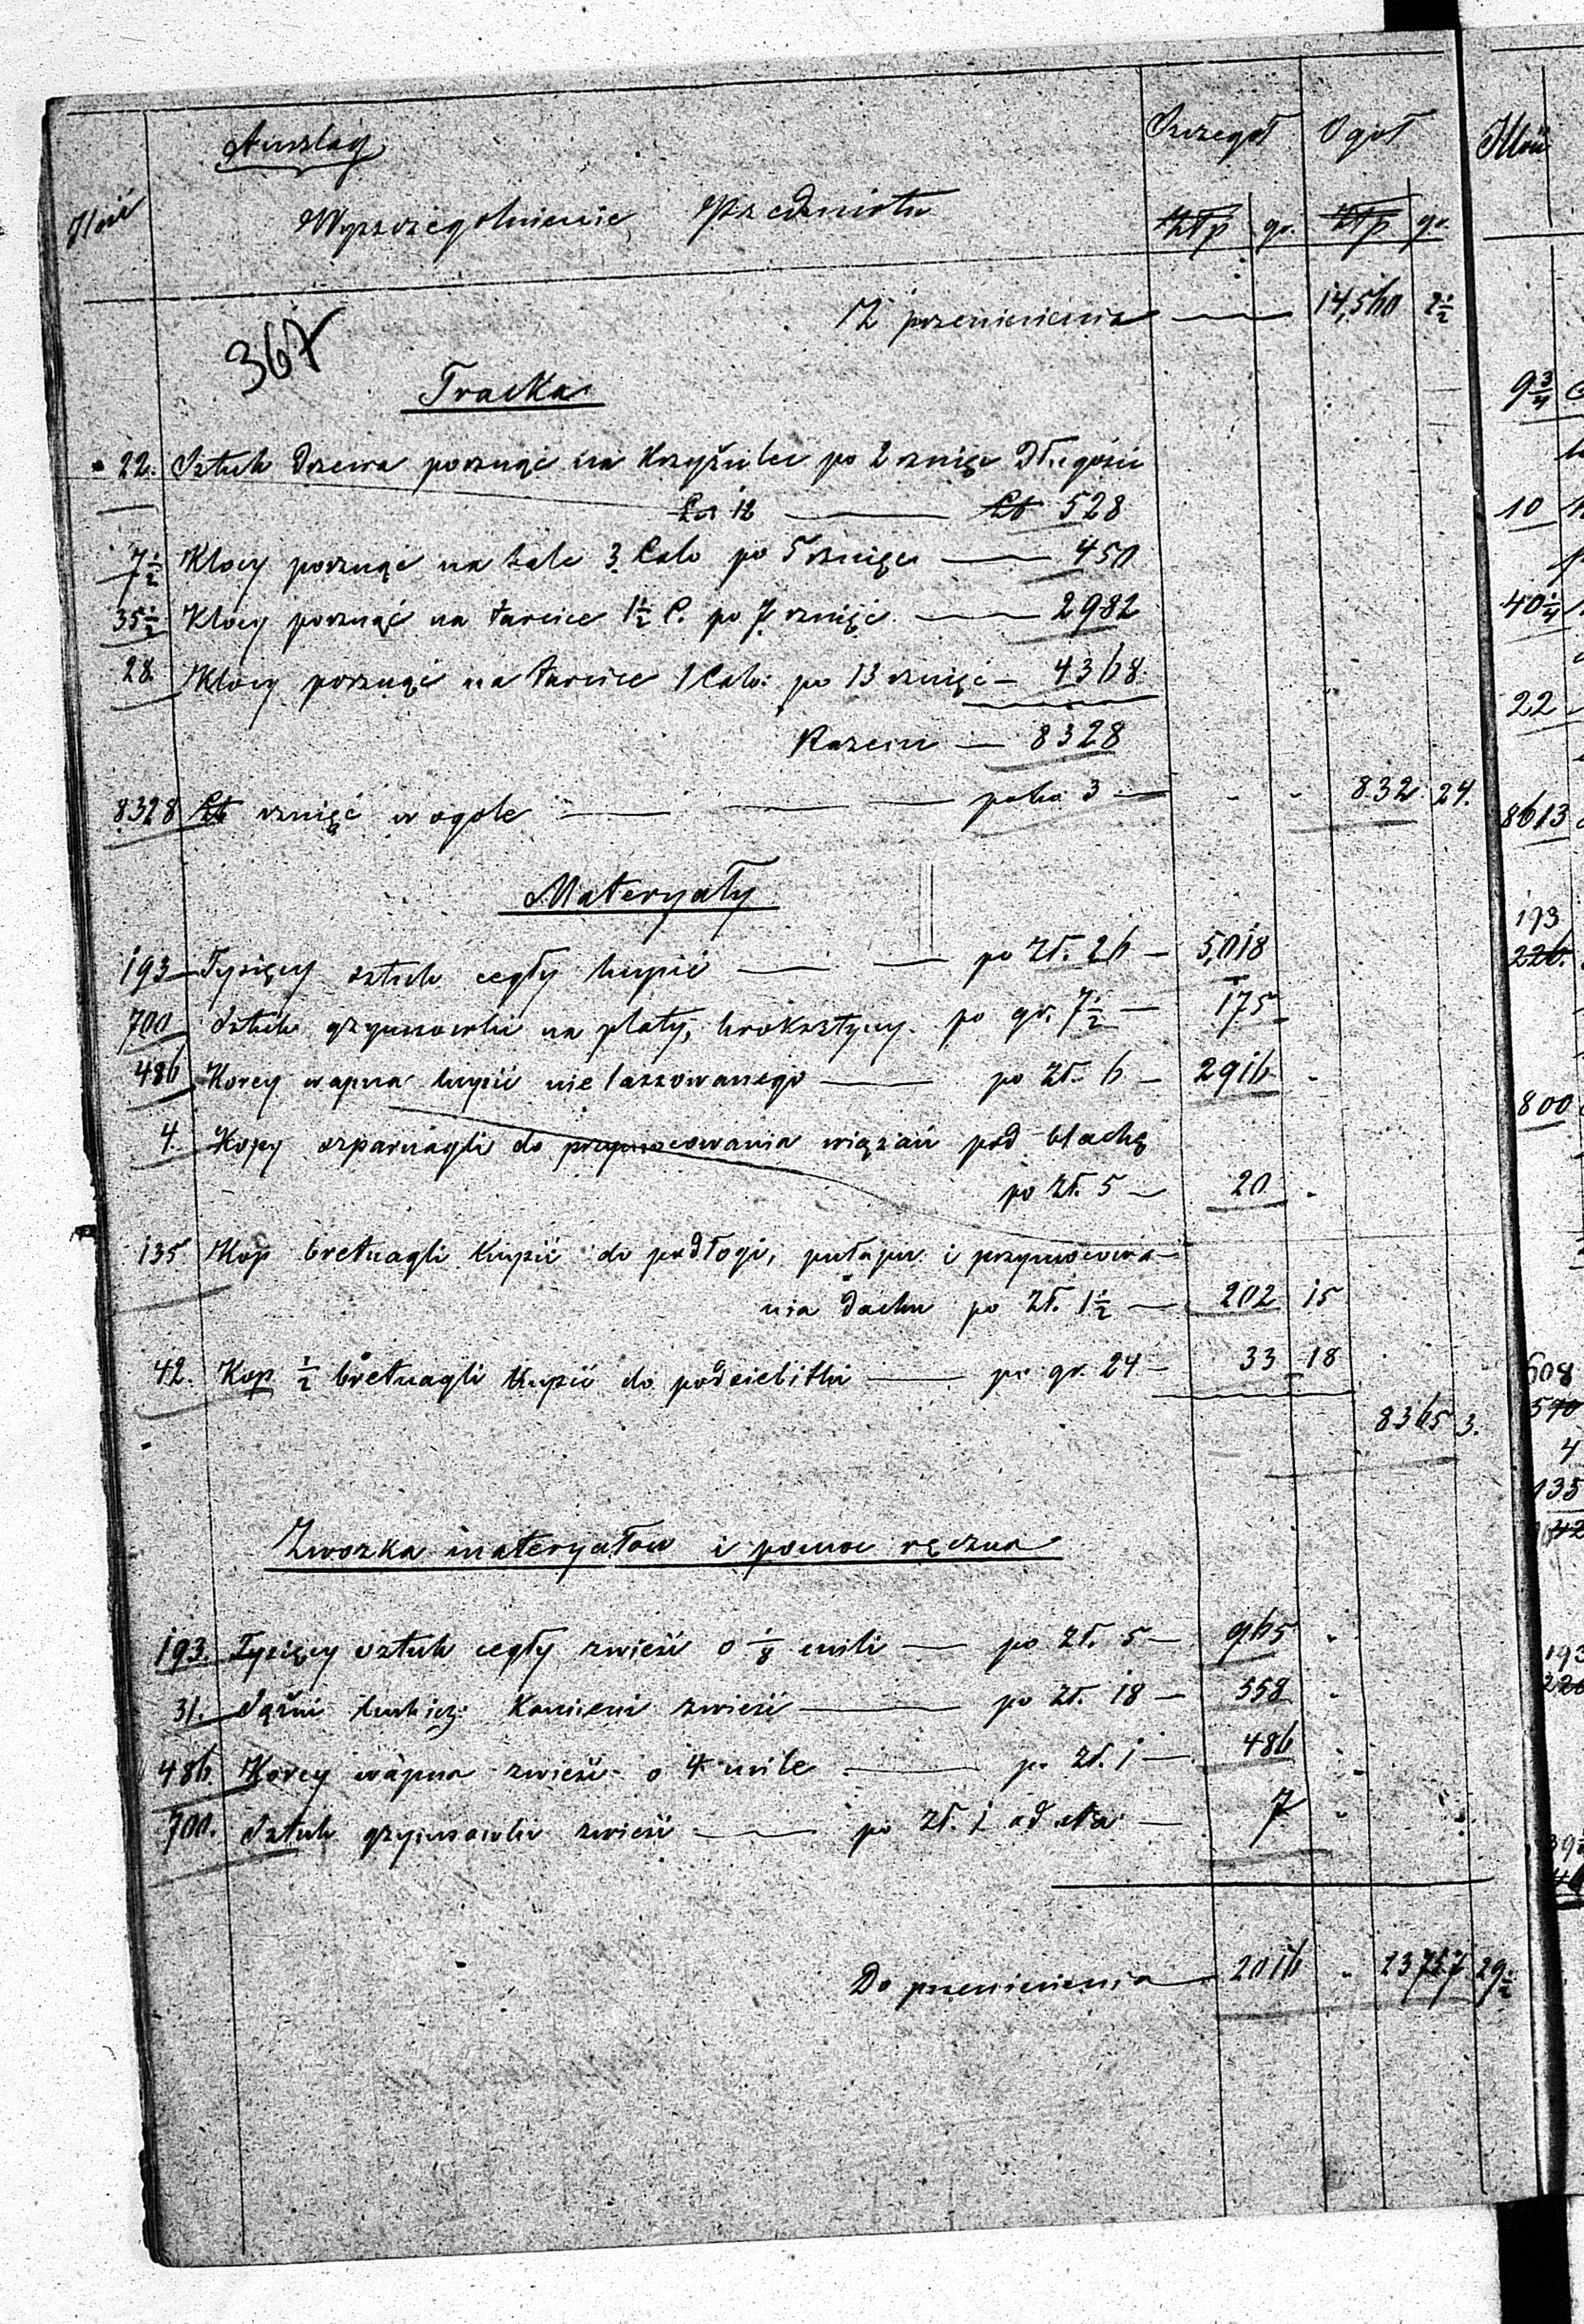 Anszlag
Szczegół Ogół
Ilość Wyszczególnienie Przedmiotu
złp gr. złp gr.
Z przeniesienia — 14,560 2½
367
Tracka
22. Sztuk drzewa porznąć na Krzyżulce po 2 rznięć długości
Ło 12 — Łb 528
7½ Klocy porznąć na bale 3 Calo po 5 rznięć — 450
35½ Klocy porznąć na tarcice 1½ C. po 7 rznięć — 2982
28. Klocy porznąć na tarcice 1 Calo: po 13 rznięć — 4368
Razem — 8328
8328 Łb rznięć w ogole — — 3 — 832 24.
Materyały
193 Tysięcy sztuk cegły kupić — po zł. 26 — 5,018
700 Sztuk gzymsowki na platy, kroksztyny. po gr. 7½ — 175
486 Korcy wapna kupić nie lassowanego — po zł. 6 — 2916
4. Kopy szparnagli do przymocowania wiązań pod blachę
po zł. 5 — 20
135 Kop bretnagli kupić do podłogi, pułapu i przymocowa-
nia dachu po zł. 1½ — 202 15
42. Kop ½ bretnagli kupić do podsiebitki — po gr. 24 — 33 18
8365 3.
Zwozka materyałow i pomoc ręczna
193. Tysięcy sztuk cegły zwieść o ⅛ mili — po zł. 5 — 965
31. Sążni kubicz: Kamieni zwieść — po zł. 18 — 558
486. Korcy wapna zwieść o 4 mile — po zł. 1 — 486
700. Sztuk gzymsowki zwieść — po zł. 1 od sta — 7
Do przeniesienia — 2016 23757 29½
Ilość
9¾
10
40¼
22
8613
193
226.
800
608
570
4
135
42
193